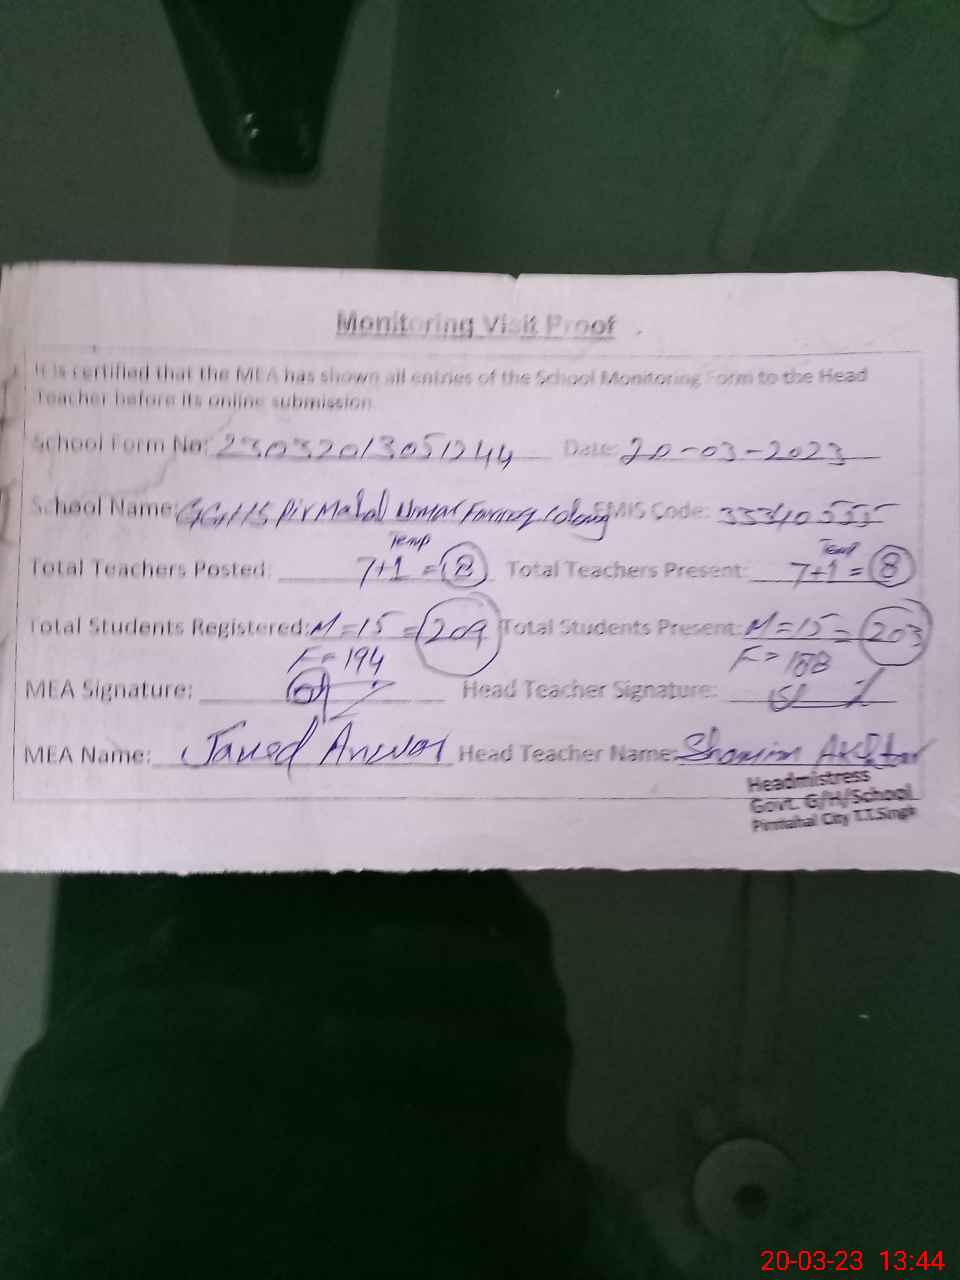 Monitoring Visit Proof
It is certified that the MEA has shown all entries of the School Monitoring Form to the Head
Teacher before its online submission.
School Form No: 23032013051244 Date: 20-03-2023
School Name: GGHS Pir Mahal Umar Farooq Colony EMIS Code: 33340555
Temp Temp
Total Teachers Posted: 7+1 = 8 Total Teachers Present: 7+1 = 8
Total Students Registered: M=15 = 209 Total Students Present: M=15 = 203
F=194 F=188
MEA Signature: Head Teacher Signature:
MEA Name: Javed Anwar Head Teacher Name: Shamim Akhtar
Headmistress
Govt. G/H/School
Pirmahal City T.T.Singh
20-03-23 13:44